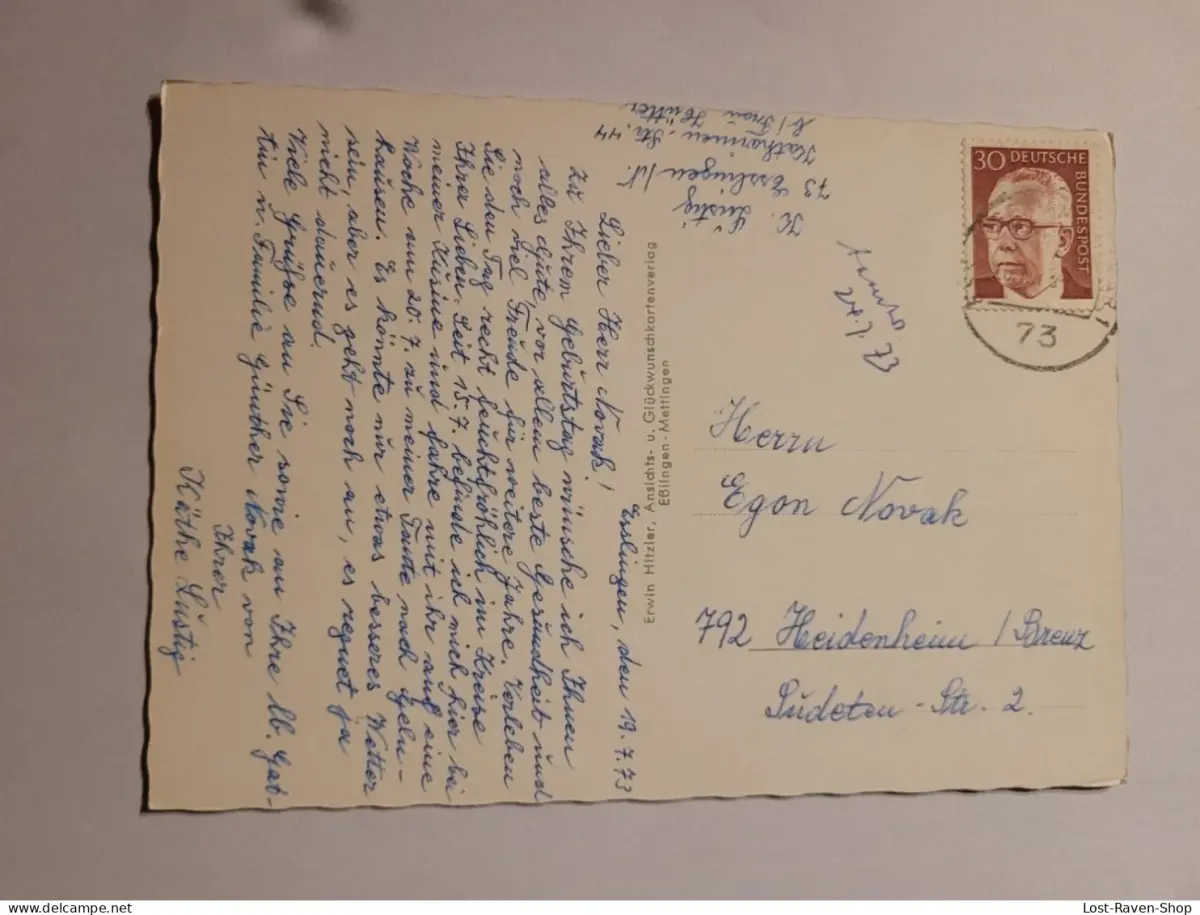 K. Lustig
73 Esslingen/N.
Katharinen-Str. 44
b/Frau
Esslingen, den 19.7.73
Lieber Herr Novak!
Zu Ihrem Geburtstag wünsche ich Ihnen
alles Gute, vor allem beste Gesundheit und
noch viel Freude für weitere Jahre. Verleben
Sie den Tag recht feuchtfröhlich im Kreise
Ihrer Lieben. Seit 15.7. befinde ich mich hier bei
meiner Kusine und fahre mit ihr auf eine
Woche am 20.7. zu meiner Tante nach Geln-
hausen. Es könnte nur etwas besseres Wetter
sein, aber es geht noch an, es regnet ja
nicht dauernd.
Viele Grüße an Sie sowie an Ihre lb. Gat-
tin u. Familie Günther Novak von
Ihrer
Käthe Lustig
Erwin Hitzler, Ansichts- u. Glückwunschkartenverlag
Eßlingen-Mettingen
30 DEUTSCHE
BUNDESPOST
73
Herrn
Egon Novak
792 Heidenheim / Brenz
Sudeten-Str. 2.
Lost-Raven-Shop